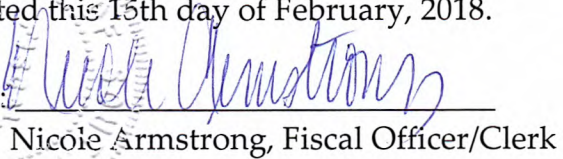 ted this 15th day of February, 2018.
Nicole Armstrong
Nicole Armstrong, Fiscal Officer/Clerk